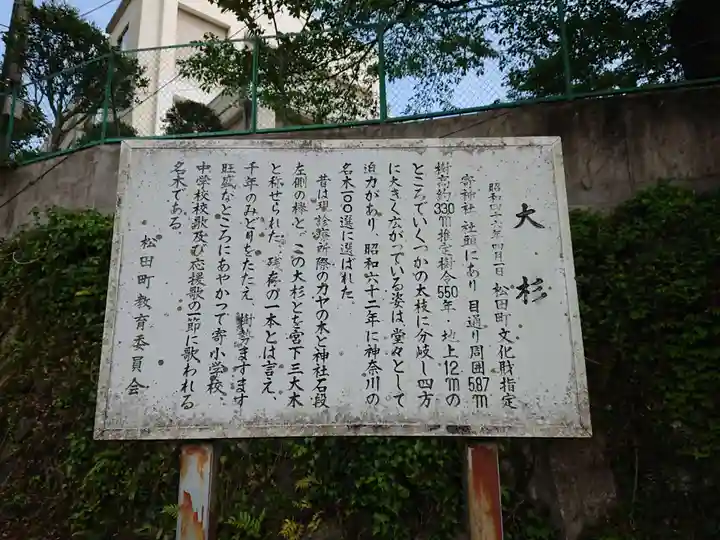 大杉
昭和四十六年四月一日 松田町文化財指定
寄神社 社頭にあり 目通り周囲5.87m
樹高約33.0m推定樹令550年 地上12mの
ところでいくつかの大枝に分岐し四方
に大きく広がっている姿は堂々として
迫力があり、昭和六十二年に神奈川の
名木一〇〇選に選ばれた。
昔は現診療所際のカヤの木と神社石段
左側の欅と、この大杉とを宮下三大木
と称せられた。残存の一本とは言え、
千年のみどりをたたえ、樹勢ますます
旺盛なところにあやかつて寄小学校、
中学校校歌及び応援歌の一節に歌われる
名木である。
松田町教育委員会